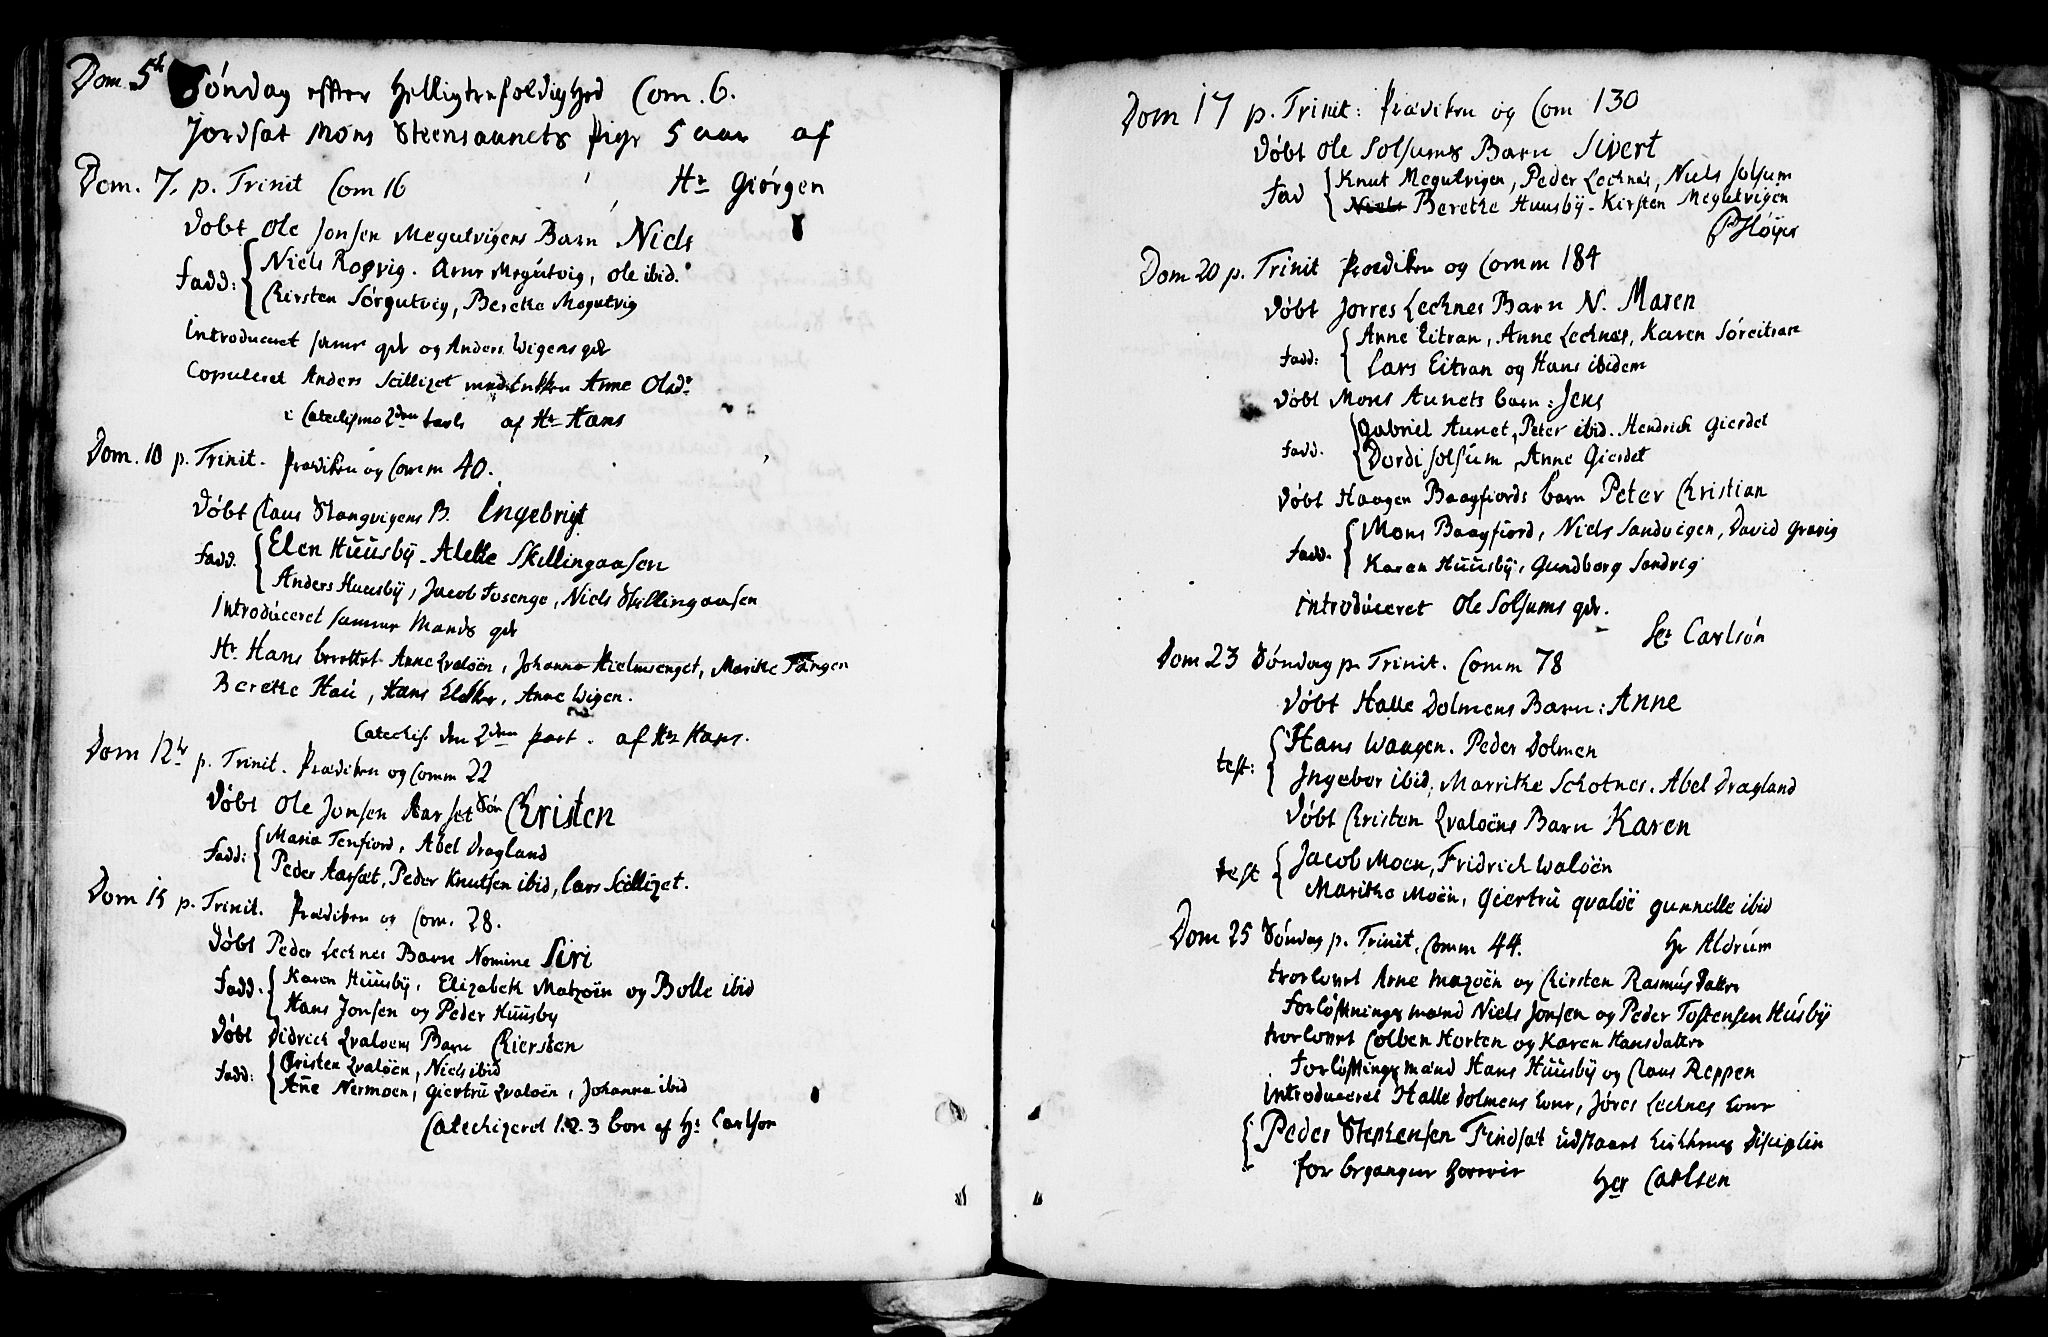 Dom. 5te Søndag efter Helligtrefoldighed Com. 6.
Jordsat Mons Steensaunets Pige 5 aar af
Dom. 7. p. Trinit Com 16 Hr Giørgen
Døbt Ole Jonsen Megutvigens Barn Niels
Fadd: Niels Ropvig. Arne Megutvig, Ole ibid.
Kirsten Sørgutvig, Berethe Megutvig
Introduceret samme qde og Anders Wigens qde
Copuleret Anders Scillizet med Enken Anne Olsdr
i Catechismo 2den parts af Hr Hans
Dom. 10 p. Trinit. Prædiken og Comm 40.
Døbt Claus Stangvigens B. Engebrigt
Fadd. Elen Huusby. Alethe Skillingaasen
Anders Huusby, Jacob Fosenge, Niels Skillingaasen
Introduceret samme Mands qde
Hr Hans berettet Anne Qvaløen, Johanna Hielmsenget, Marithe Tangen
Berethe Hau, Hans, Anne Wigen.
Catechis. den 2den part. af Hr Hans.
Dom 12te p. Trinit. Prædiken og Comm 22
Døbt Ole Jonsen Aarset Søn Christen
Fadd: Maria Tenfiord, Abel Dragland
Peder Aarsæt, Peder Knutsen ibid, Lars Scillizet.
Dom 15 p. Trinit. Prædiken og Com. 28.
Døbt Peder Lechnes Barn Nomine Siri
Fadd. Karen Huusby, Elizabeth Matzøin og Bolle ibid
Hans Jonsen og Peder Huusby
Døbt Didrich Qvaloens Barn Chiersten
Fadd: Christen Qvaløen, Niels ibid
Añe Nermoen, Giertru Qvaløen, Johanna ibid
Catechizeret 1.2.3 bon af Hr Carlson
Dom 17 p. Trinit: Prædiken og Com 130
Døbt Ole Solsums Barn Sivert
Fad Knut Megutvigen, Peder Lechnes, Niels Solsum
Niels Berethe Huusby. Kirsten Megutvigen
P Høyer
Dom 20 p. Trinit Prædiken og Comm 184
Døbt Jørres Lechnes Barn N. Maren
Fadd: Anne Eitran, Anne Lechnes, Karen Søreitran
Lars Eitran og Hans ibidem
Døbt Mons Aunets barn: Jens
Fadd. Gabriel Aunet, Peter ibid. Hendrich Gierdet
Dordi Solsum, Anne Gierdet
Døbt Haagen Baagfiords barn Peter Christian
Fadd. Mons Baagfiord, Niels Sandvigen, David Gravig
Karen Huusby, Gundborg Sandvig
Introduceret Ole Solsums qde.
Hr Carlsøn
Dom 23 Søndag p. Trinit. Comm 78
Døbt Halle Dolmens Barn: Anne
test: Hans Waagen. Peder Dolmen
Ingebor ibid, Marrithe Schotnes. Abel Dragland
Døbt Christen Qvaløens Barn Karen
test Jacob Moen, Fridrich Waløen
Marithe Moën, Giertru qvaløe gunnelle ibid
Dom 25 Søndag p. Trinit, Comm 44. Hr Aldrum
trorlovet Arne Mazøën og Chirsten Rasmus Datter
Forløftnings mænd Niels Jonsen og Peder Tostensen Húsby
trorlovet Colben Horten og Karen Hansdatter
Forløftnings mænd Hans Huusby og Claus Reppen
Introduceret Halle Dolmens Kone, Jøres Lechnes Kone
Peder Stephensen Findsæt udstaaet Kirkkens Disciplin
for begangen
Her Carlsen